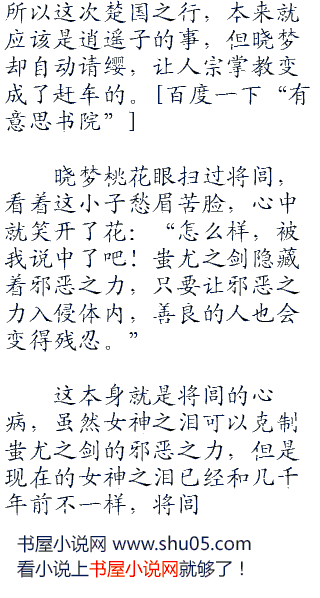 所以这次楚国之行，本来就
应该是逍遥子的事，但晓梦
却自动请缨，让人宗掌教变
成了赶车的。[百度一下“有
意思书院”]
晓梦桃花眼扫过将闾，
看着这小子愁眉苦脸，心中
就笑开了花：“怎么样，被
我说中了吧！蚩尤之剑隐藏
着邪恶之力，只要让邪恶之
力入侵体内，善良的人也会
变得残忍。”
这本身就是将闾的心
病，虽然女神之泪可以克制
蚩尤之剑的邪恶之力，但是
现在的女神之泪已经和几千
年前不一样，将闾
书屋小说网 www.shu05.com
看小说上书屋小说网就够了！